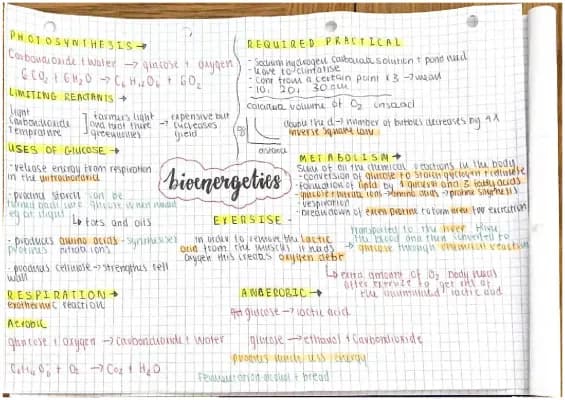 PHOTOSYNTHESIS →
Carbondioxide + water → glucose + oxygen
6CO2 + 6H2O → C6H12O6 + 6O2
LIMITING REACTANTS →
light
Carbondioxide
Temperature
farmers light
and heat there
greenhouses
→ expensive but
increases
yield
USES OF GLUCOSE →
- release energy from respiration
in the mitochondria
→ fats and oils
- produces amino acids - synthesises
proteins
- produces cellulose → strengthens cell
wall
RESPIRATION →
exothermic reaction
Aerobic
glucose + oxygen → carbondioxide + water
C6H12O6 + O2 → CO2 + H2O
bioenergetics
REQUIRED PRACTICAL
- Sodium hydrogen carbonate solution + pond weed
- leave to climatise
- Conr from a certain point x 3 → mean
- 10, 20, 30 cm
calculate volume of O2
double the d → number of bubbles decreases by 4x
inverse square law
distance
METABOLISM →
Sum of all the chemical reactions in the body
- Conversion of glucose to starch glycogen + cellulose
- formation of lipid by 1 glycerol and 3 fatty acids
- glucose + nitrate ions → amino acids → protein synthesis
- respiration
- breakdown of excess protein to form urea for excretion
EXERSISE -
in order to remove the lactic
acid from the muscles it needs
oxygen this creates oxygen debt
transported to the liver through
the blood and then converted to
glucose through chemical reaction
↳ extra amount of O2 body needs
after exercise to get rid of
the accumulated lactic acid
ANAEROBIC →
glucose → lactic acid
glucose → ethanol + Carbondioxide
produces much less energy
Fermentation alcohol + bread